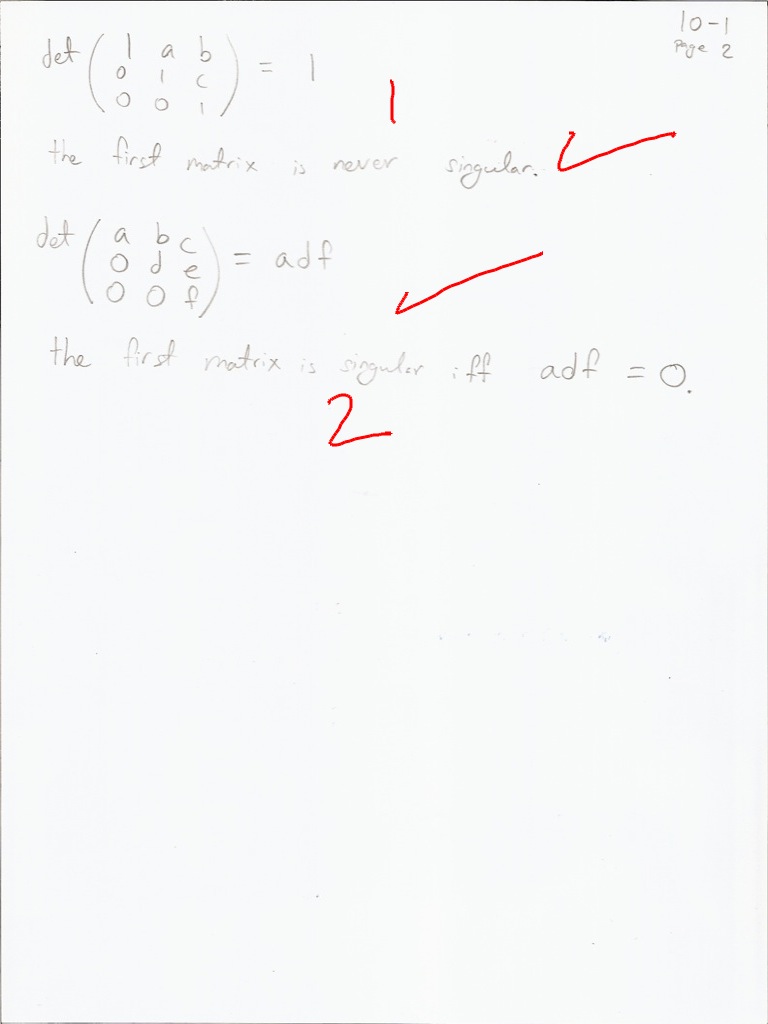 10-1
Page 2
det ( 1 a b
0 1 c
0 0 1 ) = 1
1
the first matrix is never singular.
det ( a b c
0 d e
0 0 f ) = adf
the first matrix is singular iff adf = 0.
2